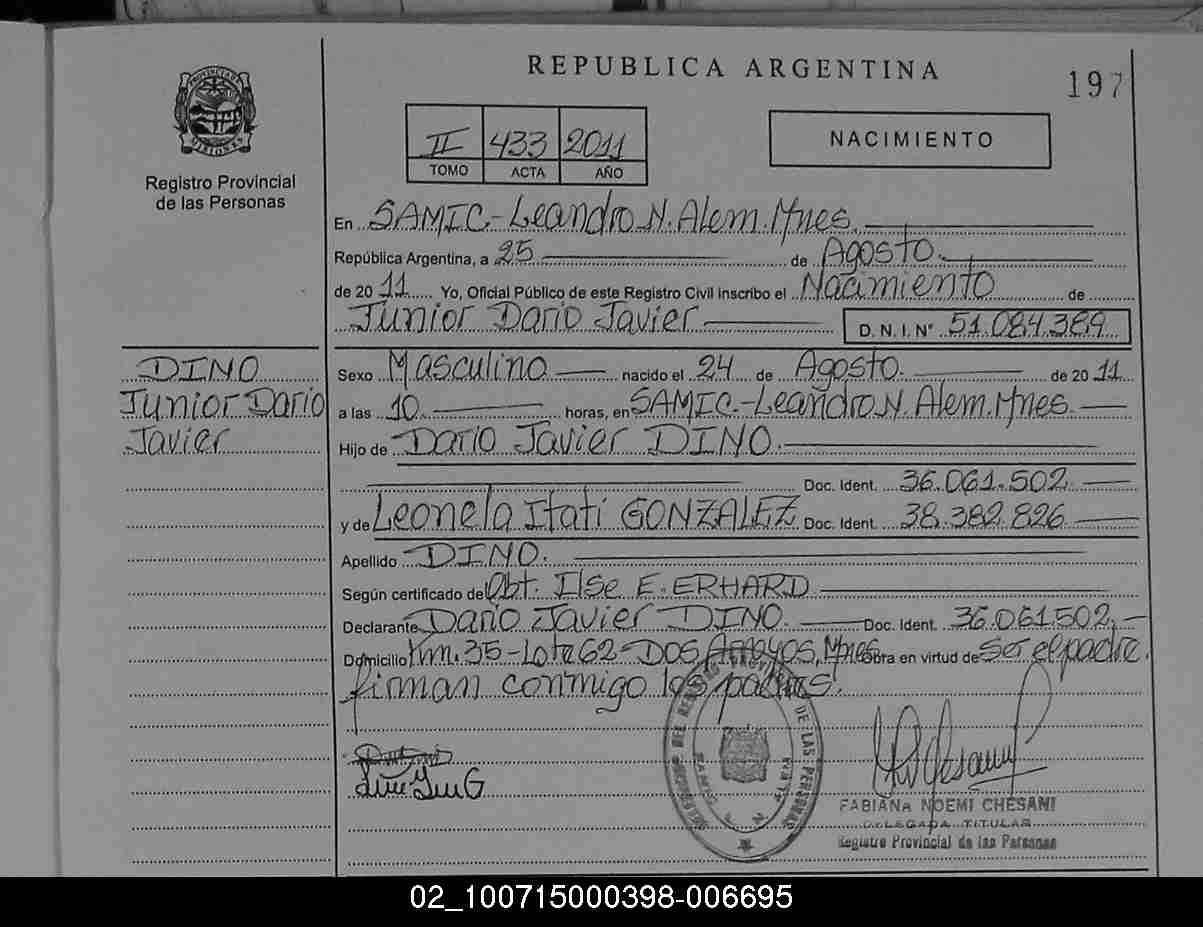 REPUBLICA ARGENTINA
197
PROVINCIA DE MISIONES
Registro Provincial
de las Personas
II 433 2011
TOMO ACTA AÑO
NACIMIENTO
En SAMIC.-Leandro N. Alem. Mnes.
República Argentina, a 25 de Agosto.
de 2011 Yo, Oficial Público de este Registro Civil inscribo el Nacimiento de
Junior Dario Javier D. N. I. Nº 51.084.389
DINO
Junior Dario
Javier
Sexo Masculino nacido el 24 de Agosto. de 2011
a las 10 horas, en SAMIC.-Leandro N. Alem. Mnes.
Hijo de Dario Javier DINO.
Doc. Ident. 36.061.502
y de Leonela Itati GONZALEZ Doc. Ident. 38.382.826
Apellido DINO.
Según certificado de Obt. Ilse E. ERHARD
Declarante Dario Javier DINO. Doc. Ident. 36.061.502
Domicilio Km. 35-Lote 62-DOS Arroyos, Mnes Obra en virtud de Ser el padre.
firman conmigo los padres.
DEL REGISTRO PROVINCIAL DE LAS PERSONAS
FABIANA NOEMI CHESANI
DELEGADA TITULAR
Registro Provincial de las Personas
02_100715000398-006695